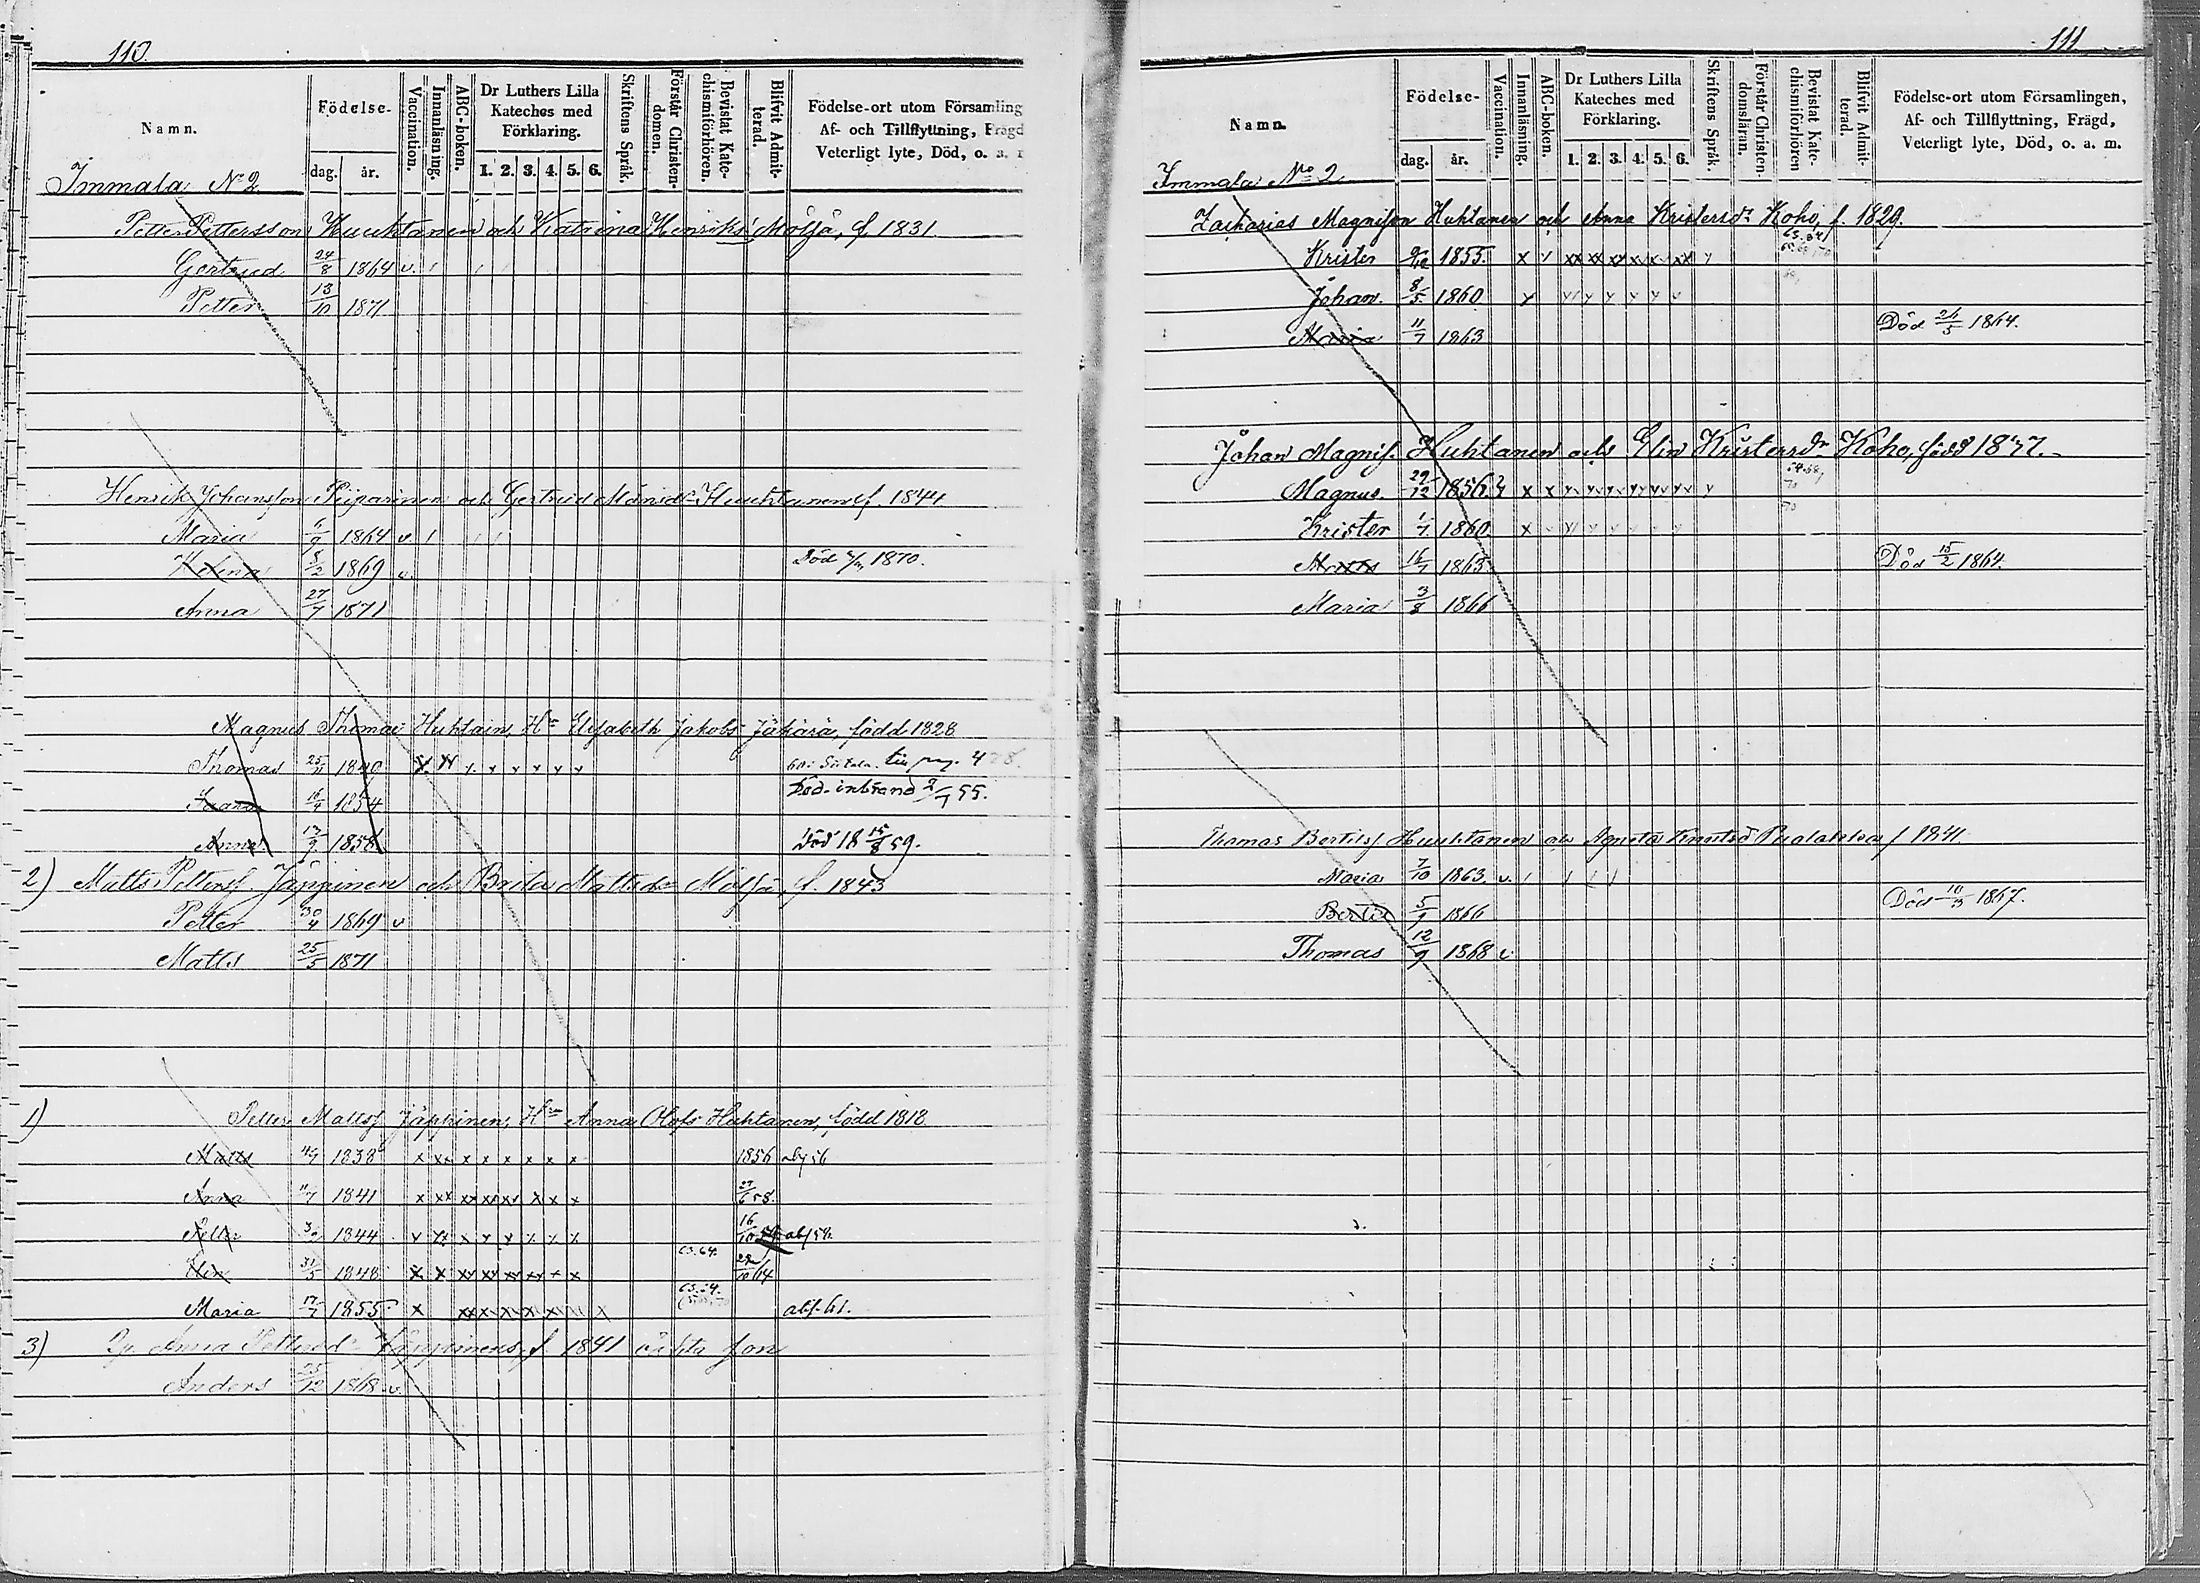 110.
Namn.
Födelse-
dag.
år.
Vaccination.
Innanläsning.
ABC-boken.
Dr Luthers Lilla Kateches med Förklaring.
1. 2. 3. 4. 5. 6.
Skriftens Språk.
Förstår Christendomen.
Bevistat Katechismiförhören.
Blifvit Admitterad.
Födelse-ort utom Församling
Af- och Tillflyttning, Frägd
Veterligt lyte, Död, o. a. m
Immala No 2
Petter Pettersson Huuhtanen och Katrina Henriks Mölsä, f. 1831.
Gertrud 24/8 1864 v.
Petter 13/10 1871
Henrik Johansson och Gertrud Månsdr Huuhtanen f. 1844
Maria 6/9 1864 v
8/2 1869 v. Död 1870.
Anna 27/7 1871
Magnus Thomas Huhtain, Hu Elisabeth Jakobs född 1828
Thomas 25/11 1840 till pag. 478.
16/9 1854 Död 2/7 55.
Anna 13/9 1858 Död 18 15/8 59.
2) Matts Petterss. Jäppinen och Brita Mattsdr Mölsä, f. 1843
Petter 30/4 1869 v
Matts 25/5 1871
1) Petter Matts Jäppinen, Hu Anna Olofs Huhtanen, född 1818.
Matts 1838 x xx x x x x x x 1856
Anna 11/7 1841 x xx xx xx xx x x x 27/6 58.
Petter 1844 16/10
Elin 31/5 1848 x x xx xx xx xx x x 63.64.
Maria 17/7 1855 x abs. 61.
3) Anna Pettersdr Jäppinens, f. 1841 oäkta son
Anders 25/12 1868 v.
111.
Namn.
Födelse-
dag.
år.
Vaccination.
Innanläsning.
ABC-boken.
Dr Luthers Lilla Kateches med Förklaring.
1. 2. 3. 4. 5. 6.
Skriftens Språk.
Förstår Christendomsläran.
Bevistat Katechismiförhören
Blifvit Admitterad.
Födelse-ort utom Församlingen,
Af- och Tillflyttning, Frägd,
Veterligt lyte, Död, o. a. m.
Immala No 2
Zacharias Magnisson Huhtanen och Anna Kristersdr Koho, f. 1829.
Krister 1855.
Johan. 8/5 1860
Maria 11/7 1863 Död 26/5 1864.
Johan Magniss. Huhtanen och Elin Kristersdr Koho, född
Magnus. 29/12 1856
Krister 1/7 1860.
Matts 16/7 1863 Död 15/2 1864.
Maria 3/8 1866
Thomas Bertilss. Huuhtanen och Agneta f. 1841.
Maria 7/10 1863. v.
Bertil 5/9 1866 Död 1867.
Thomas 12/9 1868 v.